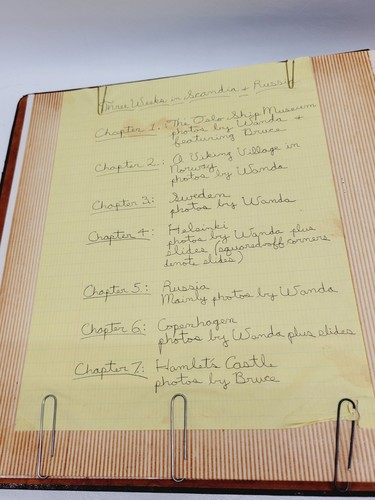 Three Weeks in Scandia + Russia
Chapter 1. The Oslo Ship Museum
photos by Wanda +
featuring Bruce
Chapter 2: A Viking Village in
Norway
photos by Wanda
Chapter 3: Sweden
photos by Wanda
Chapter 4: Helsinki
photos by Wanda plus
slides (squared-off corners
denote slides)
Chapter 5: Russia
Mainly photos by Wanda
Chapter 6: Copenhagen
photos by Wanda plus slides
Chapter 7: Hamlet's Castle
photos by Bruce